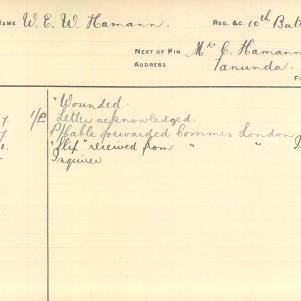 NAME W. E. W. Hamann. REG. &C. 10th Batt
NEXT OF KIN Mr C. Hamann
ADDRESS Tanunda.
"Wounded.
7. Letter acknowledged.
7. P/Cable forwarded Commis London
received from " "
Inquirer